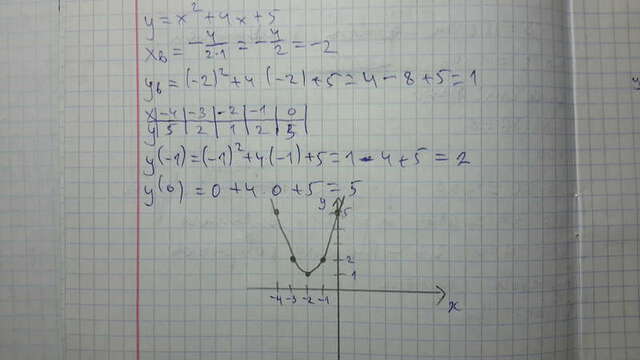 y = x² + 4x + 5
xв = -4/2·1 = -4/2 = -2
yв = (-2)² + 4 (-2) + 5 = 4 - 8 + 5 = 1
x -4 -3 -2 -1 0
y 5 2 1 2 5
y(-1) = (-1)² + 4(-1) + 5 = 1 - 4 + 5 = 2
y(0) = 0 + 4 · 0 + 5 = 5
y
5
2
1
-4 -3 -2 -1
x